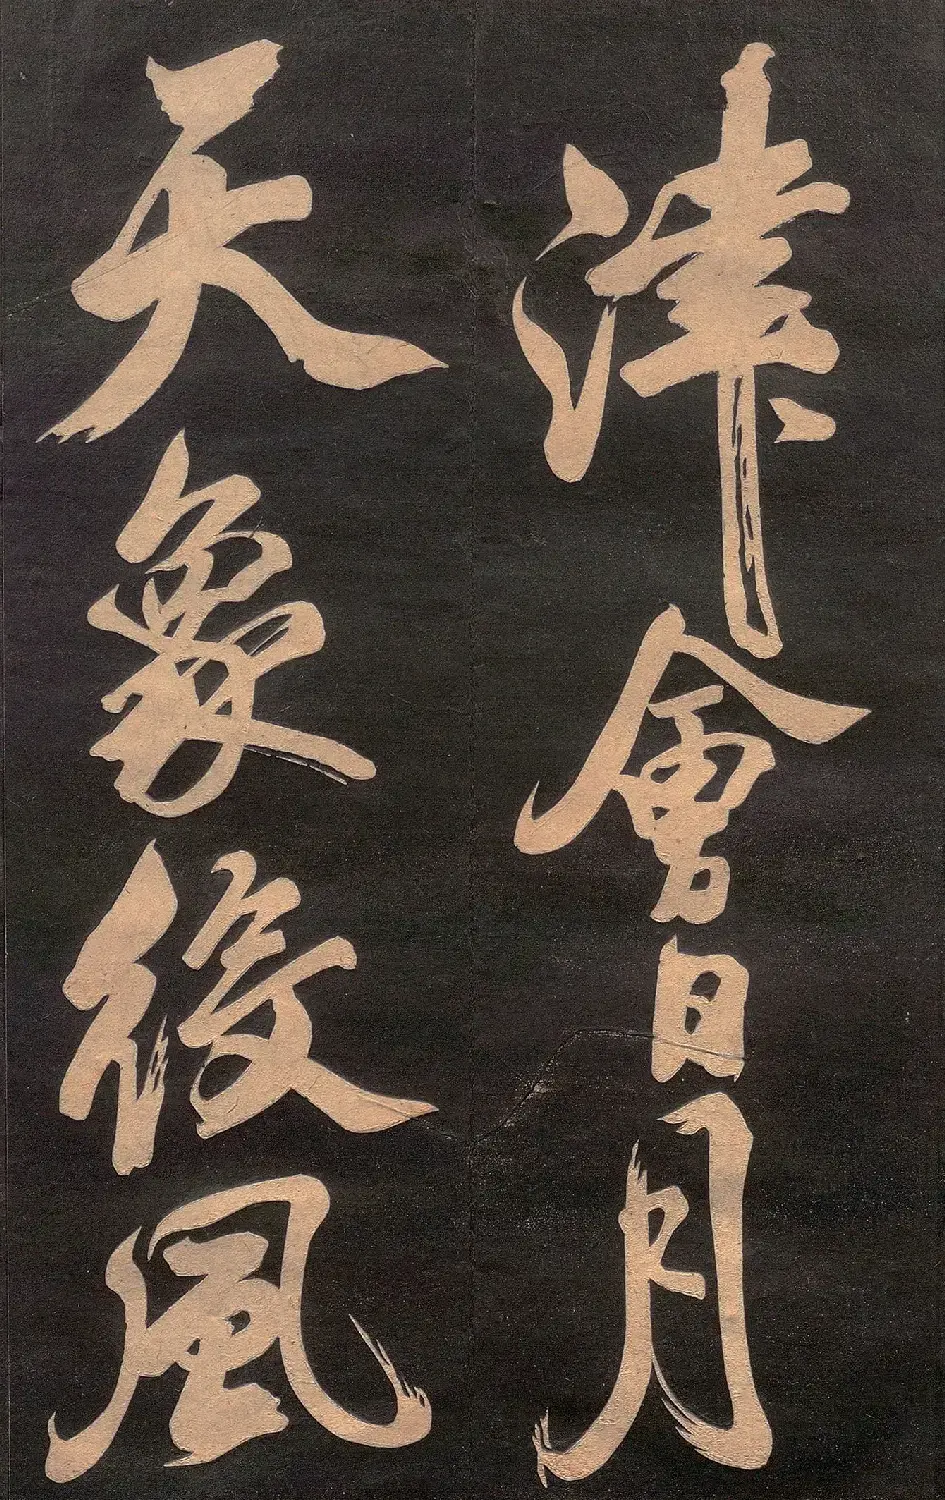 津會日月
天象役風